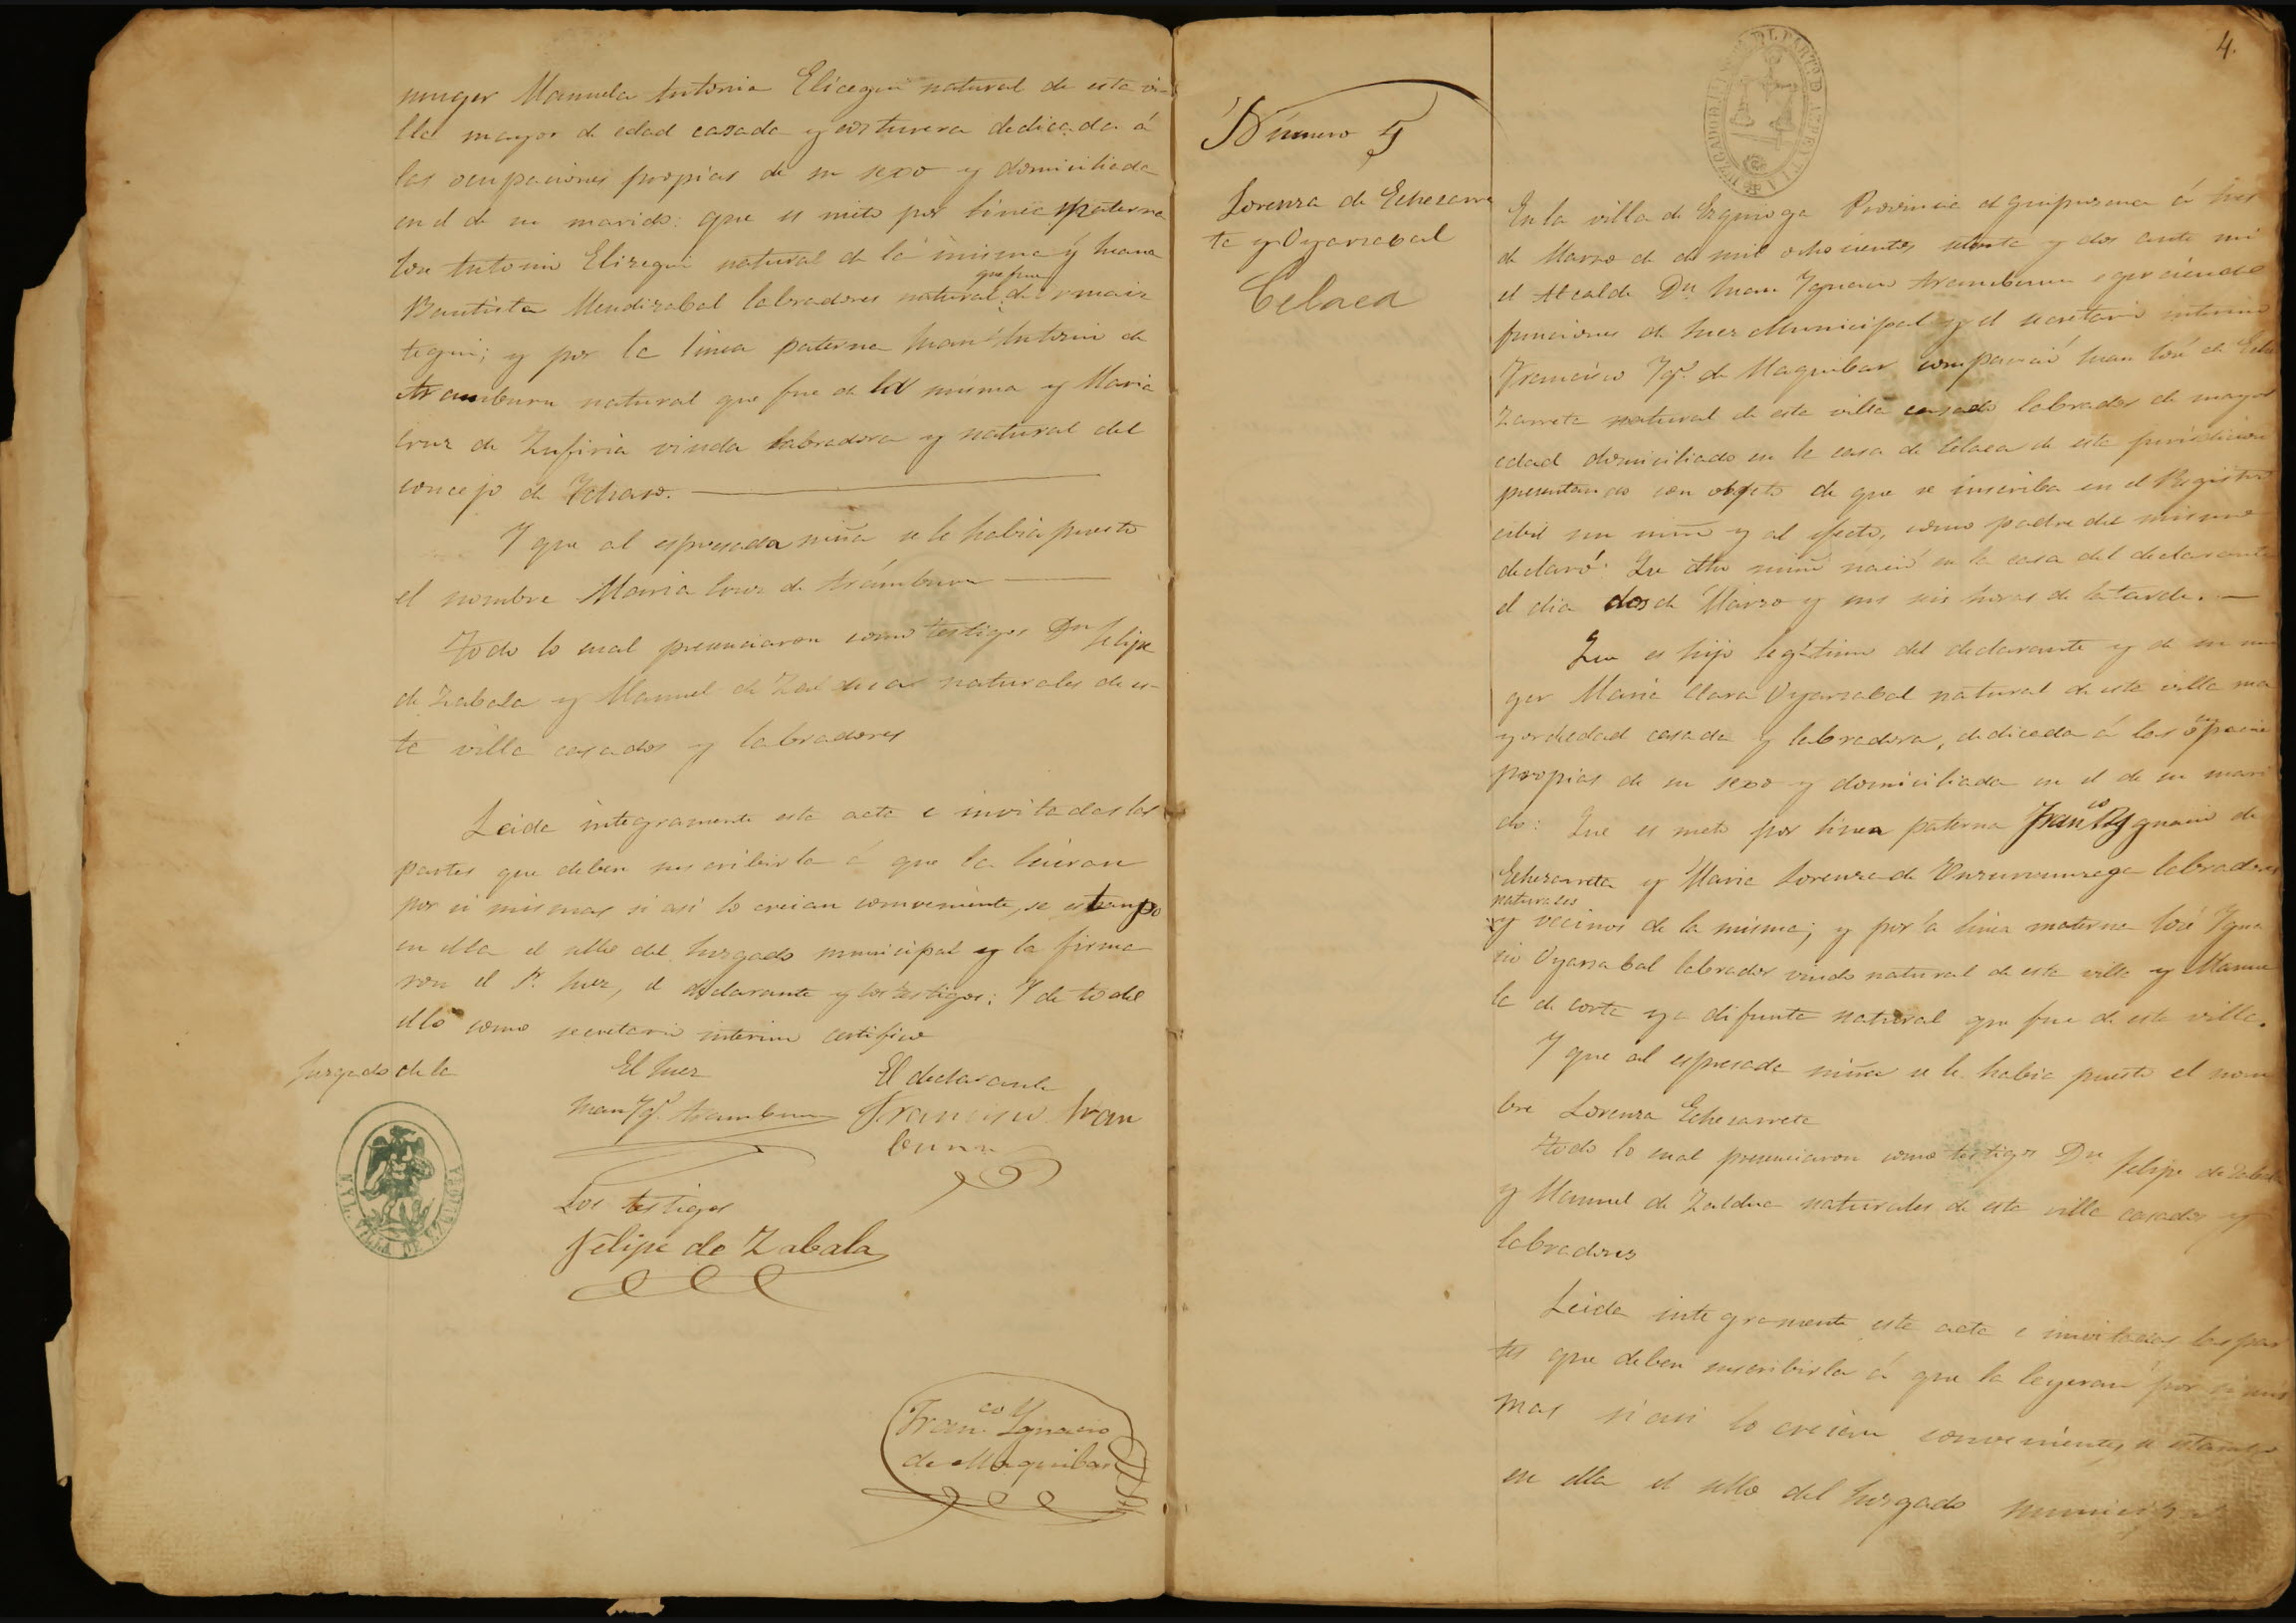 muger Manuela Antonia Elicegui natural de esta vi-
lla mayor de edad casada y costurera dedicada á
las ocupaciones propias de su sexo y domiciliada
en el de su marido: que es nieto por linea materna
José Antonio Elizegui natural de la misma y Juana
que fue
Bautista Mendizabal labradores natural de
tegui; y por la linea paterna Juan Antonio de
Aramburu natural que fue de la misma y Maria
Cruz de Zufiria viuda labradora y natural del
concejo de Ichaso.
Y que al espresada niña se le habia puesto
el nombre Maria Cruz de Arámburu
Todo lo cual presenciaron como testigos Dn Felipe
de Zabala y Manuel de Zaldua naturales de es-
te villa casados y labradores
Leida integramente esta acta e invitadas las
partes que deben suscribirla á que la leieran
por si mismas si asi lo creian conveniente, se estampo
en ella el sello del Juzgado municipal y la firma
ron el Sr. Juez, el declarante y los testigos: Y de todo
ello como secretario interino certifico
Juzgado de la
El Juez
El declarante
Juan Ygo. Aramburu
Francisco Aran
buru
MYL. VILLA DE EZQUIOGA
Los testigos
Felipe de Zabala
Franco Ygnacio
de Maguibar
4.
Número 5
Lorenza de Echezarre
ta y Oyarzabal
Celaea
JUZGADO DE 1ª DEL PARTº D AZPEITIA
En la villa de Ezquioga Provincia de Guipuzcoa á tres
de Marzo de de mil ochocientos setenta y dos ante mi
el Alcalde Dn Juan Ygnacio Aramburu egerciendo
funciones de Juez Municipal y el secretario interino
Francisco Ygo. de Maguibar compareció Juan José de Eche
zarreta natural de esta villa casado labrador de mayor
edad domiciliado en la casa de Celaea de esta jurisdicion
presentandos con objeto de que se inscriba en el Registro
cibil un niño y al efecto, como padre del mismo
declaró: Que dho niño nació en la casa del declarante
el dia dos de Marzo y sus seis horas de la tarde.
Que es hijo legitimo del declarante y de su mu
ger Maria Clara Oyarzabal natural de esta villa ma
yor de edad casada y labradora, dedicada á las ocupacione
propias de su sexo y domiciliada en el de su mari
do: Que es nieto por linea paterna Franco Ygnacio de
Echezarreta y Maria Lorenza de Unzurrunzaga labradores
naturales
y vecinos de la misma; y por la linea materna José Ygna
cio Oyarzabal labrador viudo natural de esta villa y Manue
la de Corta ya difunta natural que fue de esta villa.
Y que al espresada niña se le habia puesto el nom
bre Lorenza Echezarreta
Todo lo cual presenciaron como testigos Dn Felipe de Zabala
y Manuel de Zaldua naturales de esta villa casados y
labradores
Leida integramente esta acta e invitadas las par
tes que deben suscribirla á que la leyeran por si mis
mas si asi lo creian conveniente, se estampo
en ella el sello del Juzgado municipal